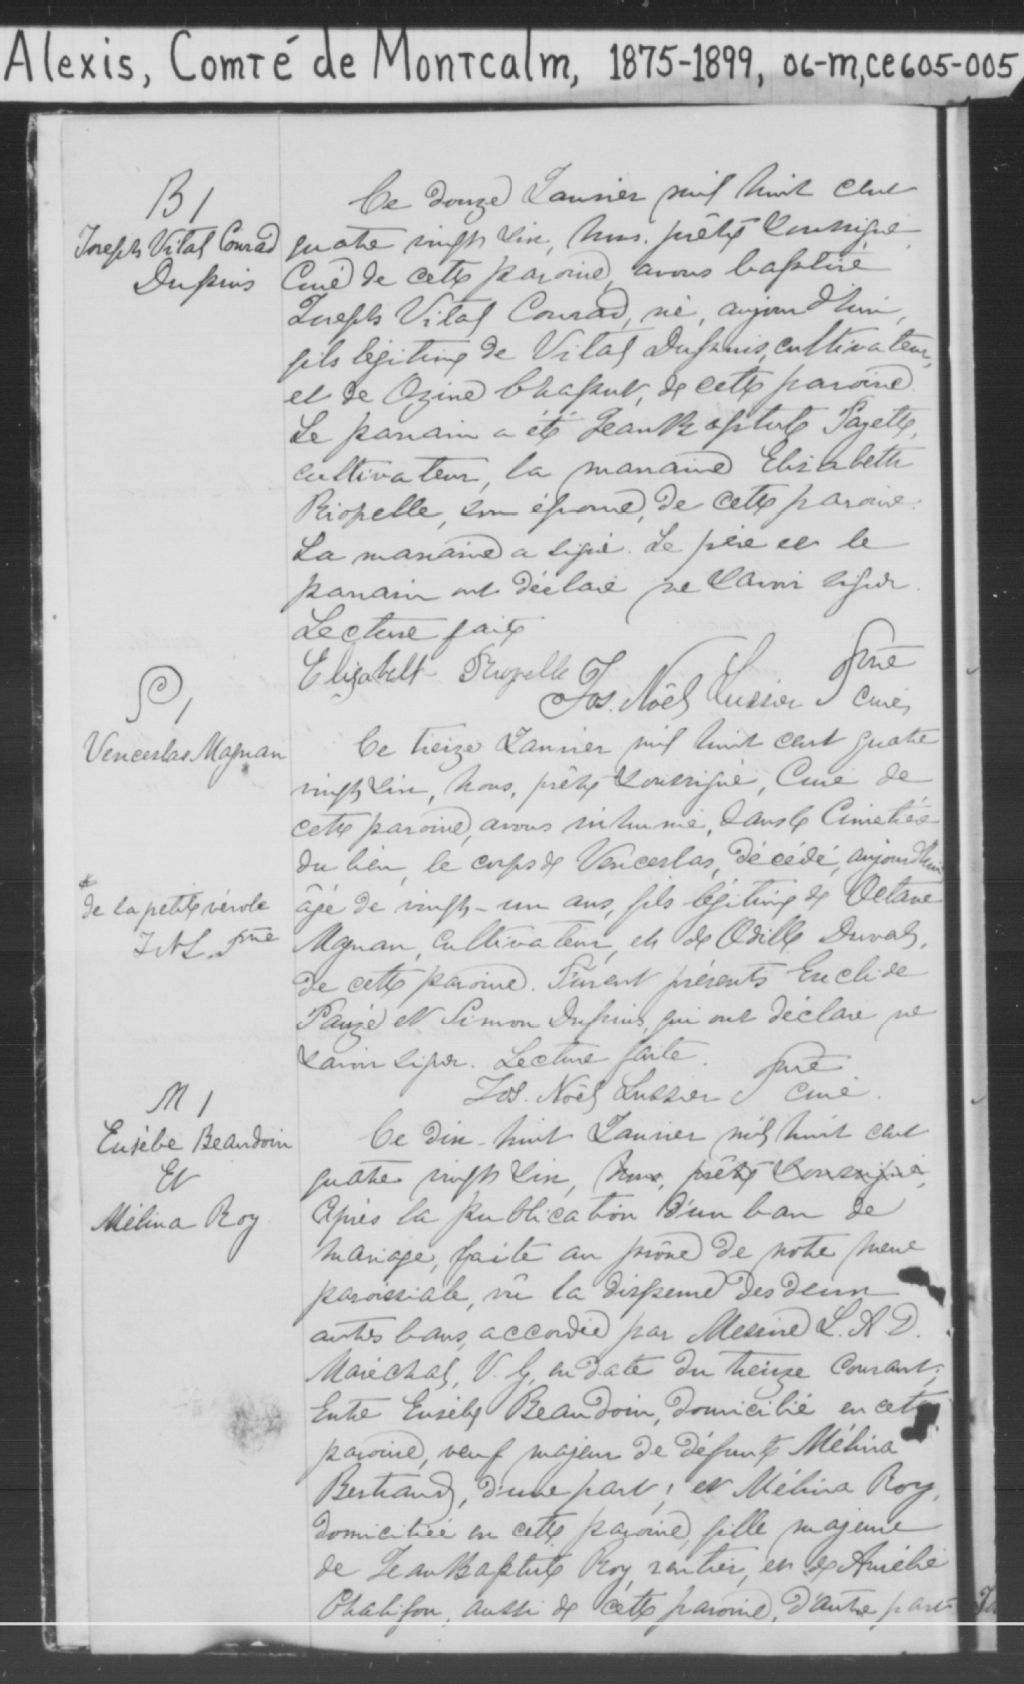 Alexis, Comté de Montcalm, 1875-1899, 06-M,CE605-005
B1
Joseph Vital Conrad
Dupuis
Ce douze Janvier mil huit cent
quatre vingt six, nous, prêtre soussigné,
Curé de cette paroisse, avons baptisé
Joseph Vital Conrad, né, aujourd'hui,
fils légitime de Vital Dupuis, cultivateur,
et de Ozine Chaput, de cette paroisse.
Le parrain a été Jean Baptiste Payette,
cultivateur, la marraine Elisabeth
Riopelle, son épouse, de cette paroisse.
La marraine a signé. Le père et le
parrain ont déclaré ne savoir signer.
Lecture faite
Elizabelt Riopelle
Jos. Noël Lussier Ptre
curé
S1
Venceslas Magnan
* de la petite vérole
J.N.L. Ptre
Ce treize Janvier mil huit cent quatre
vingt six, nous, prêtre soussigné, Curé de
cette paroisse, avons inhumé, dans le Cimetière
du lieu, le corps de Venceslas, décédé, aujourd'hui
âgé de vingt-un ans, fils légitime de Octave
Magnan, cultivateur, et de Odille Duval,
de cette paroisse. Furent présents Euclide
Pauzé et Simon Dupuis, qui ont déclaré ne
savoir signer. Lecture faite.
Jos. Noël Lussier Ptre
curé.
M1
Eusèbe Beaudoin
Et
Mélina Roy
Ce dix-huit Janvier mil huit cent
quatre vingt six, nous, prêtre soussigné,
Après la publication d'un ban de
mariage, faite au prône de notre messe
paroissiale, vû la dispense des deux
autres bans, accordée par Messire L. A. D.
Maréchal, V. G, en date du treize courant;
Entre Eusèbe Beaudoin, domicilié en cette
paroisse, veuf majeur de défunte Mélina
Bertrand, d'une part; et Mélina Roy,
domiciliée en cette paroisse, fille majeure
de Jean Baptiste Roy, rentier, et de Amélie
Chalifou, aussi de cette paroisse, d'autre part